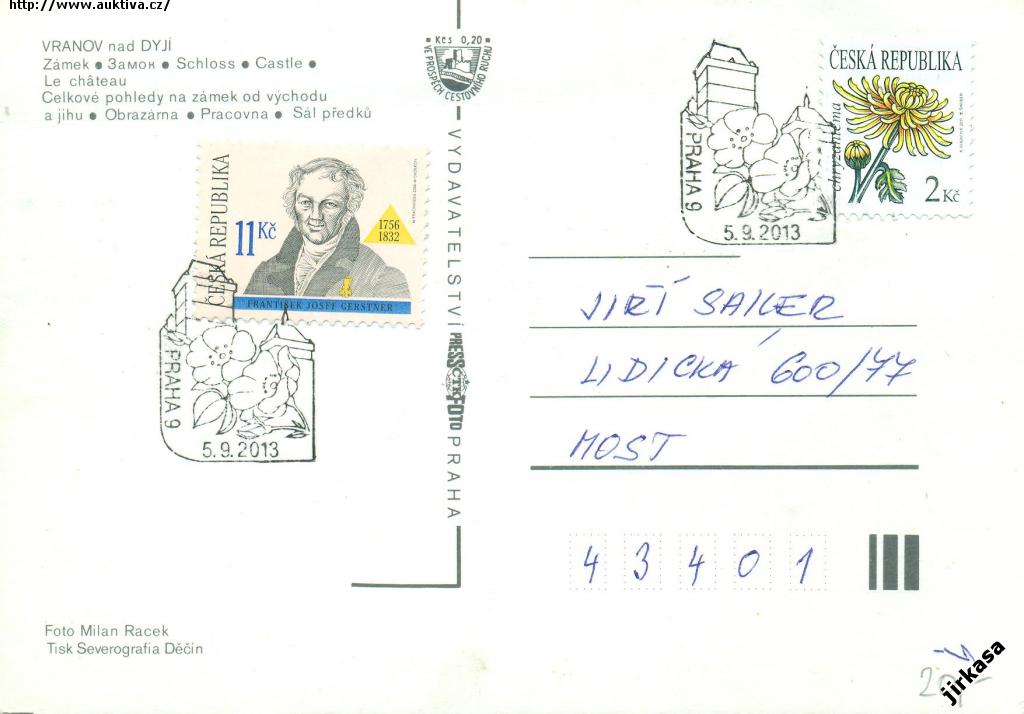 http://www.auktiva.cz/
VRANOV nad DYJÍ
Zámek • Замок • Schloss • Castle •
Le château
Celkové pohledy na zámek od východu
a jihu • Obrazárna • Pracovna • Sál předků
Kčs 0,20
VE PROSPĚCH CESTOVNÍHO RUCHU
ČESKÁ REPUBLIKA
11 Kč
1756
1832
FRANTIŠEK JOSEF GERSTNER
PRAHA 9
5.9.2013
VYDAVATELSTVÍ
PRESS
ČTK
FOTO
PRAHA
PRAHA 9
5.9.2013
ČESKÁ REPUBLIKA
chryzantéma
2 Kč
JIŘÍ SAILER
LIDICKÁ 600/77
MOST
43401
Foto Milan Racek
Tisk Severografia Děčín
jirkasa